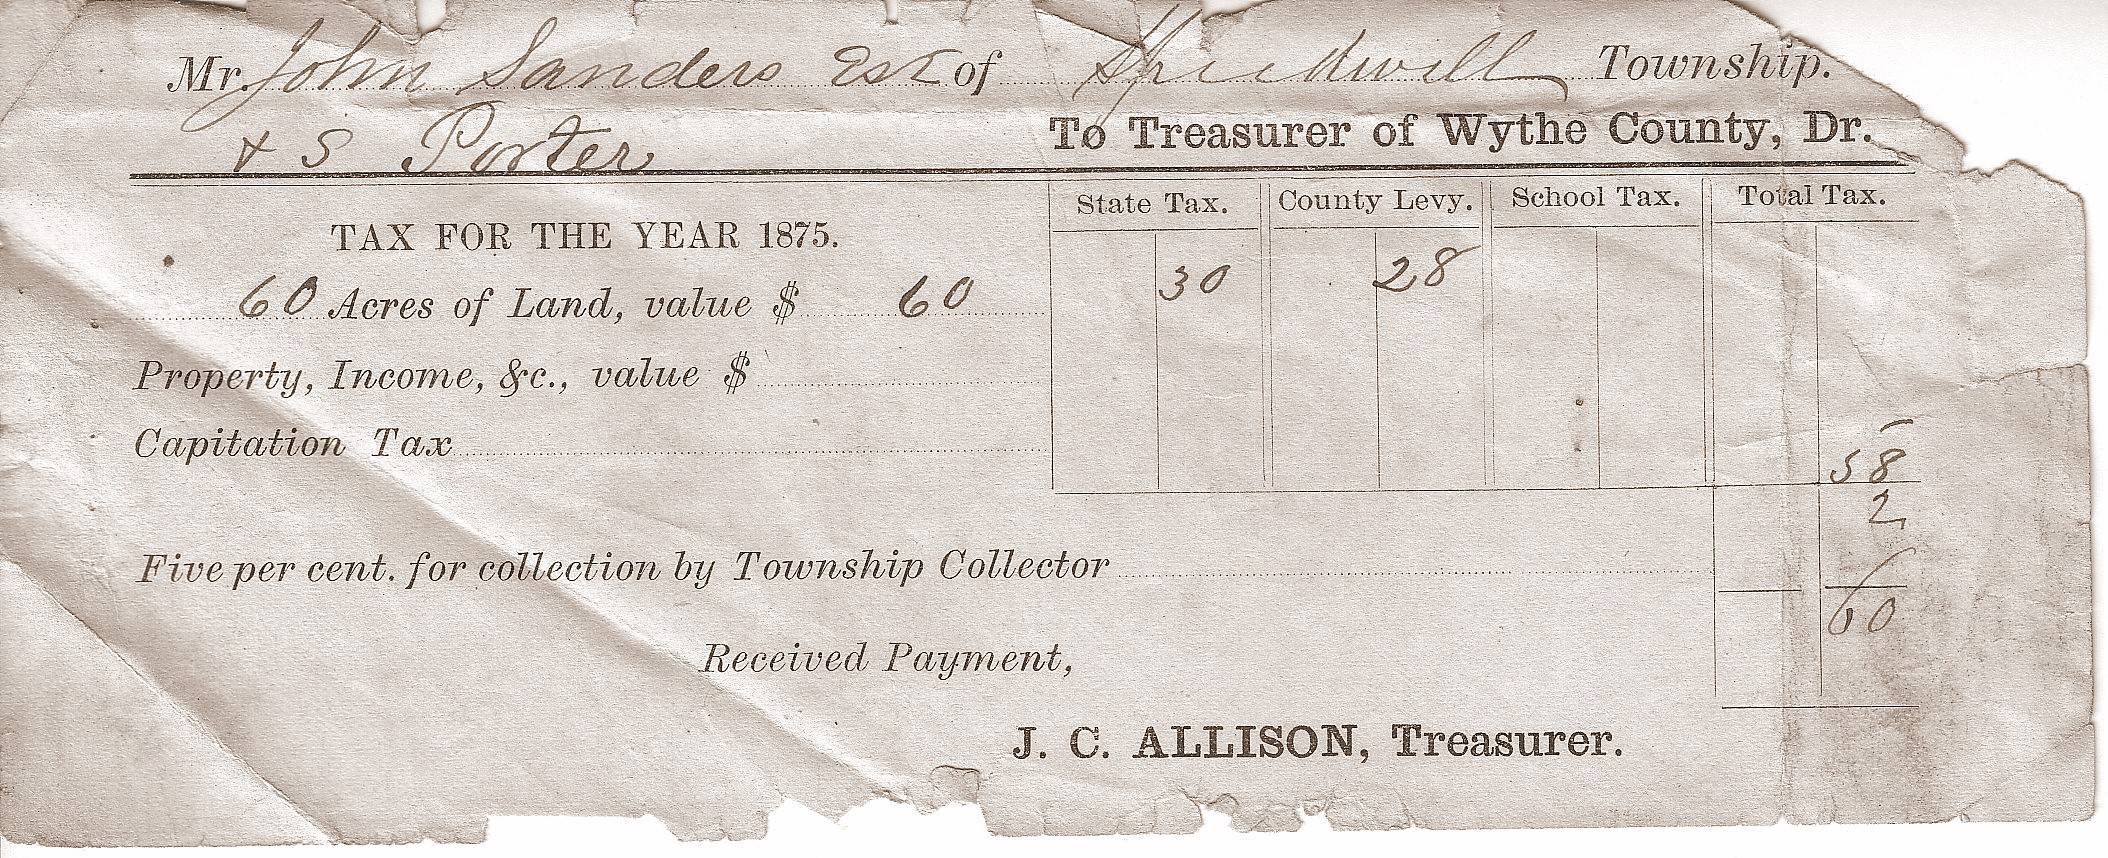 Mr. John Sanders Est of Speedwill Township.
& S Porter To Treasurer of Wythe County, Dr.
State Tax. County Levy. School Tax. Total Tax.
TAX FOR THE YEAR 1875.
60 Acres of Land, value $ 60 30 28
Property, Income, &c., value $
Capitation Tax
58
2
Five per cent. for collection by Township Collector
60
Received Payment,
J. C. ALLISON, Treasurer.